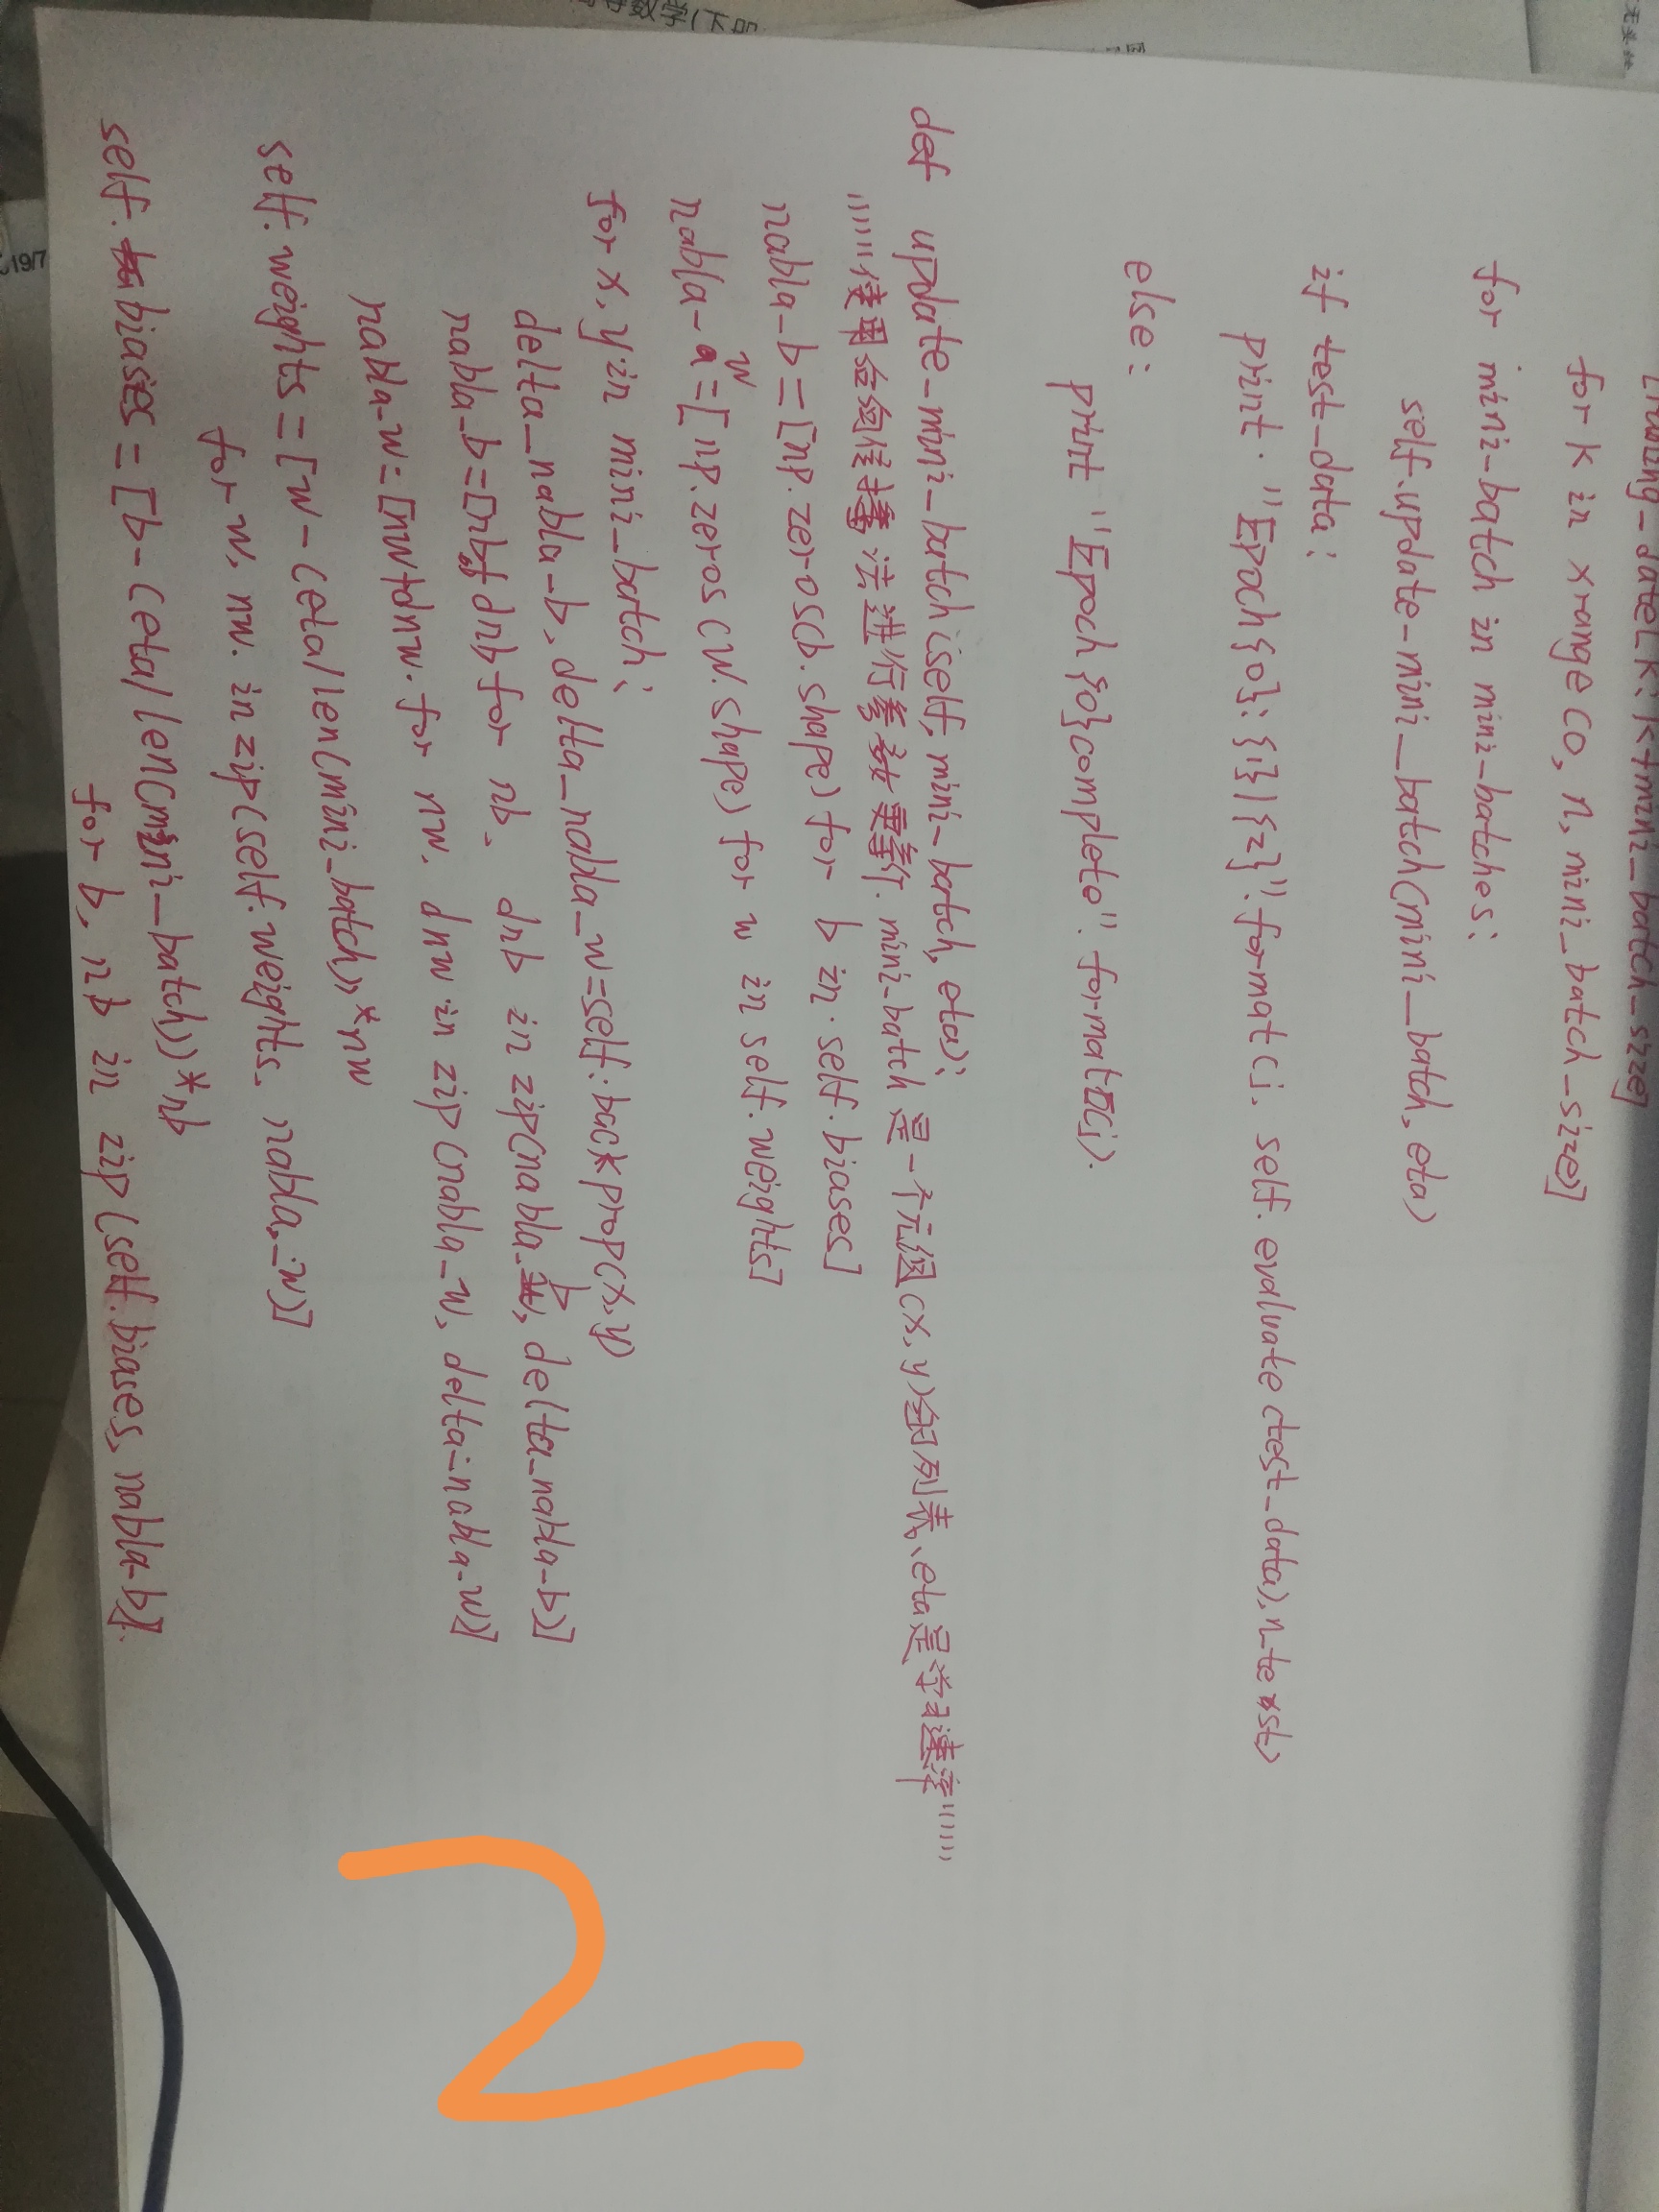 training_data[k:k+mini_batch_size]
for k in xrange(0, n, mini_batch_size)]
for mini_batch in mini_batches:
self.update_mini_batch(mini_batch, eta)
if test_data:
print "Epoch {0}: {1}/{2}".format(j, self.evaluate(test_data), n_test)
else:
print "Epoch {0} complete".format(j).
def update_mini_batch(self, mini_batch, eta):
"""使用 法进行参数更新. mini_batch 是一个元组(x, y)的列表、eta是学习速率"""
nabla_b = [np.zeros(b.shape) for b in self.biases]
nabla_w = [np.zeros(w.shape) for w in self.weights]
for x, y in mini_batch:
delta_nabla_b, delta_nabla_w = self.backprop(x, y)
nabla_b = [nb+dnb for nb, dnb in zip(nabla_b, delta_nabla_b)]
nabla_w = [nw+dnw for nw, dnw in zip(nabla_w, delta_nabla_w)]
self.weights = [w-(eta/len(mini_batch))*nw
for w, nw in zip(self.weights, nabla_w)]
self.biases = [b-(eta/len(mini_batch))*nb
for b, nb in zip(self.biases, nabla_b)].
2
19/7